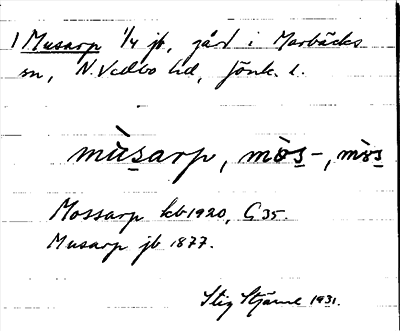 1 Musarp 1/4 jb, gård i Marbäcks
sn, N. Vedbo hd, Jönk. l.
mùsarp, mòs-, mòs
Mossarp kb 1920, G 35.
Musarp jb 1877.
Stig Stjärne 1931.